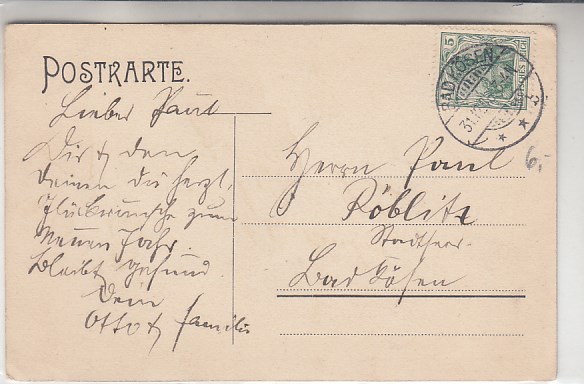 POSTKARTE.
Lieber Paul
Dir & den
deinen die herzl.
Glückwünsche zum
neuen Jahr.
Bleibt gesund
Dein
Otto & Familie
5
BAD KÖSEN
31.
Herrn Paul
Röblitz
Bad Kösen
6,-